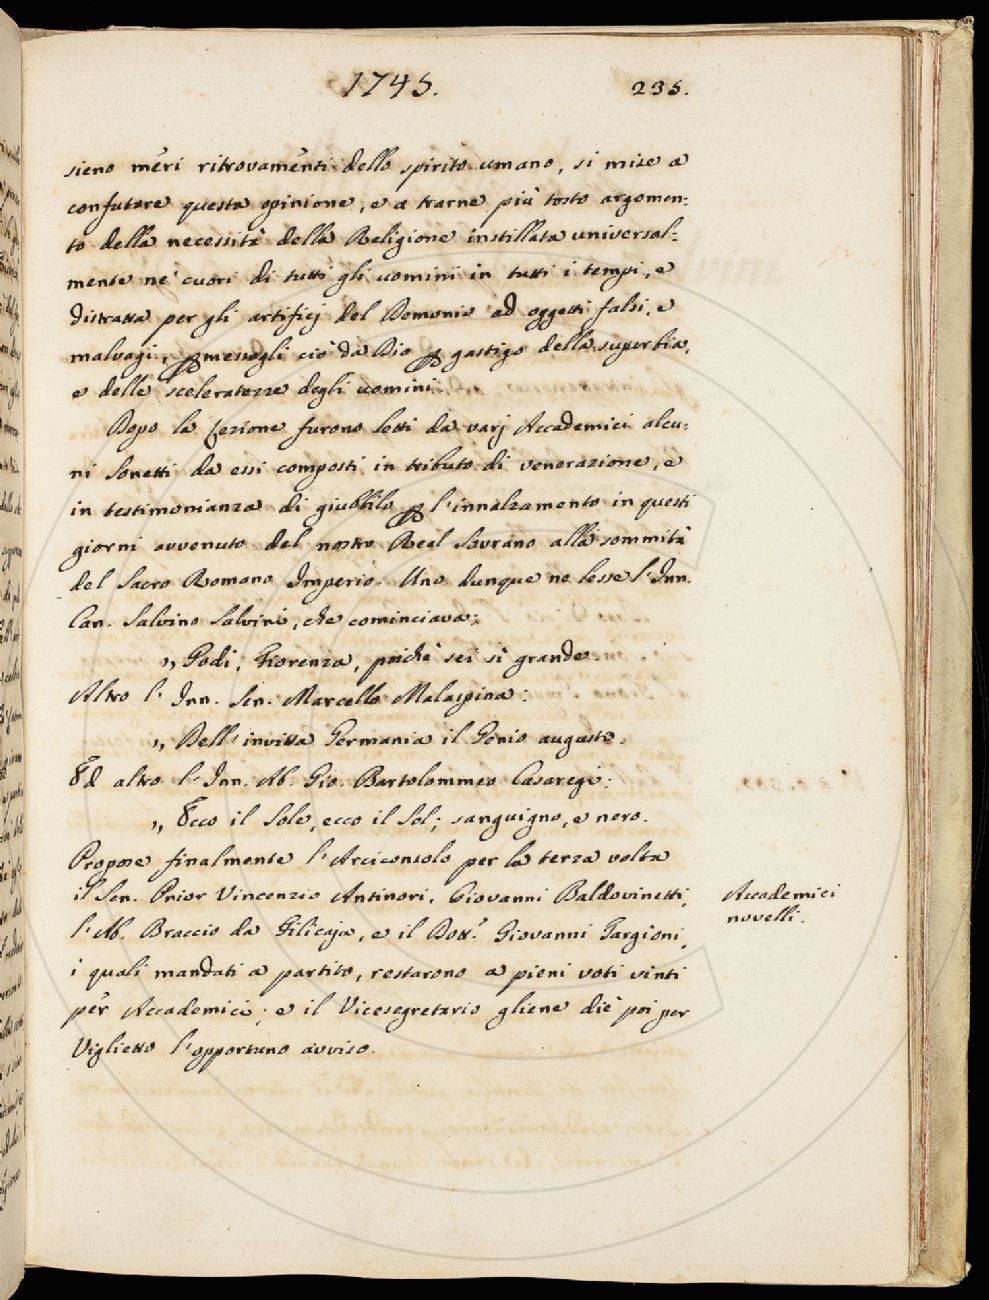 1745.
235.
sieno meri ritrovamenti dello spirito umano, si mise a
confutare questa opinione, e a trarne più tosto argomen=
to della necessità della Religione instillata universal=
mente ne' cuori di tutti gli uomini in tutti i tempi, e
distratta per gli artifizj del Demonio ad oggetti falsi, e
malvagi, permessogli ciò da Dio per gastigo della superbia,
e delle sceleratezze degli uomini.
Dopo la Lezione furono letti da varj Accademici alcu=
ni Sonetti da essi composti in tributo di venerazione, e
in testimonianza di giubbilo per l'innalzamento in questi
giorni avvenuto del nostro Real Sovrano alla sommità
del Sacro Romano Imperio. Uno dunque ne lesse l'Inn.
Can. Salvino Salvini, che cominciava:
„ Godi, Fiorenza, poichè sei sì grande.
Altro l' Inn. Sen. Marcello Malaspina:
„ Dell'invitta Germania il Genio augusto.
Ed altro l'Inn. Ab. Gio. Bartolommeo Casaregi:
„ Ecco il Sole, ecco il Sol; sanguigno, e nero.
Propose finalmente l'Arciconsolo per la terza volta
il Sen. Prior Vincenzio Antinori, Giovanni Baldovinetti,
l'Ab. Braccio da Filicaja, e il Dott.r Giovanni Targioni,
i quali mandati a partito, restarono a pieni voti vinti
per Accademici; e il Vicesegretario gliene diè poi per
Viglietto l'opportuno avviso.
Accademici
novelli.